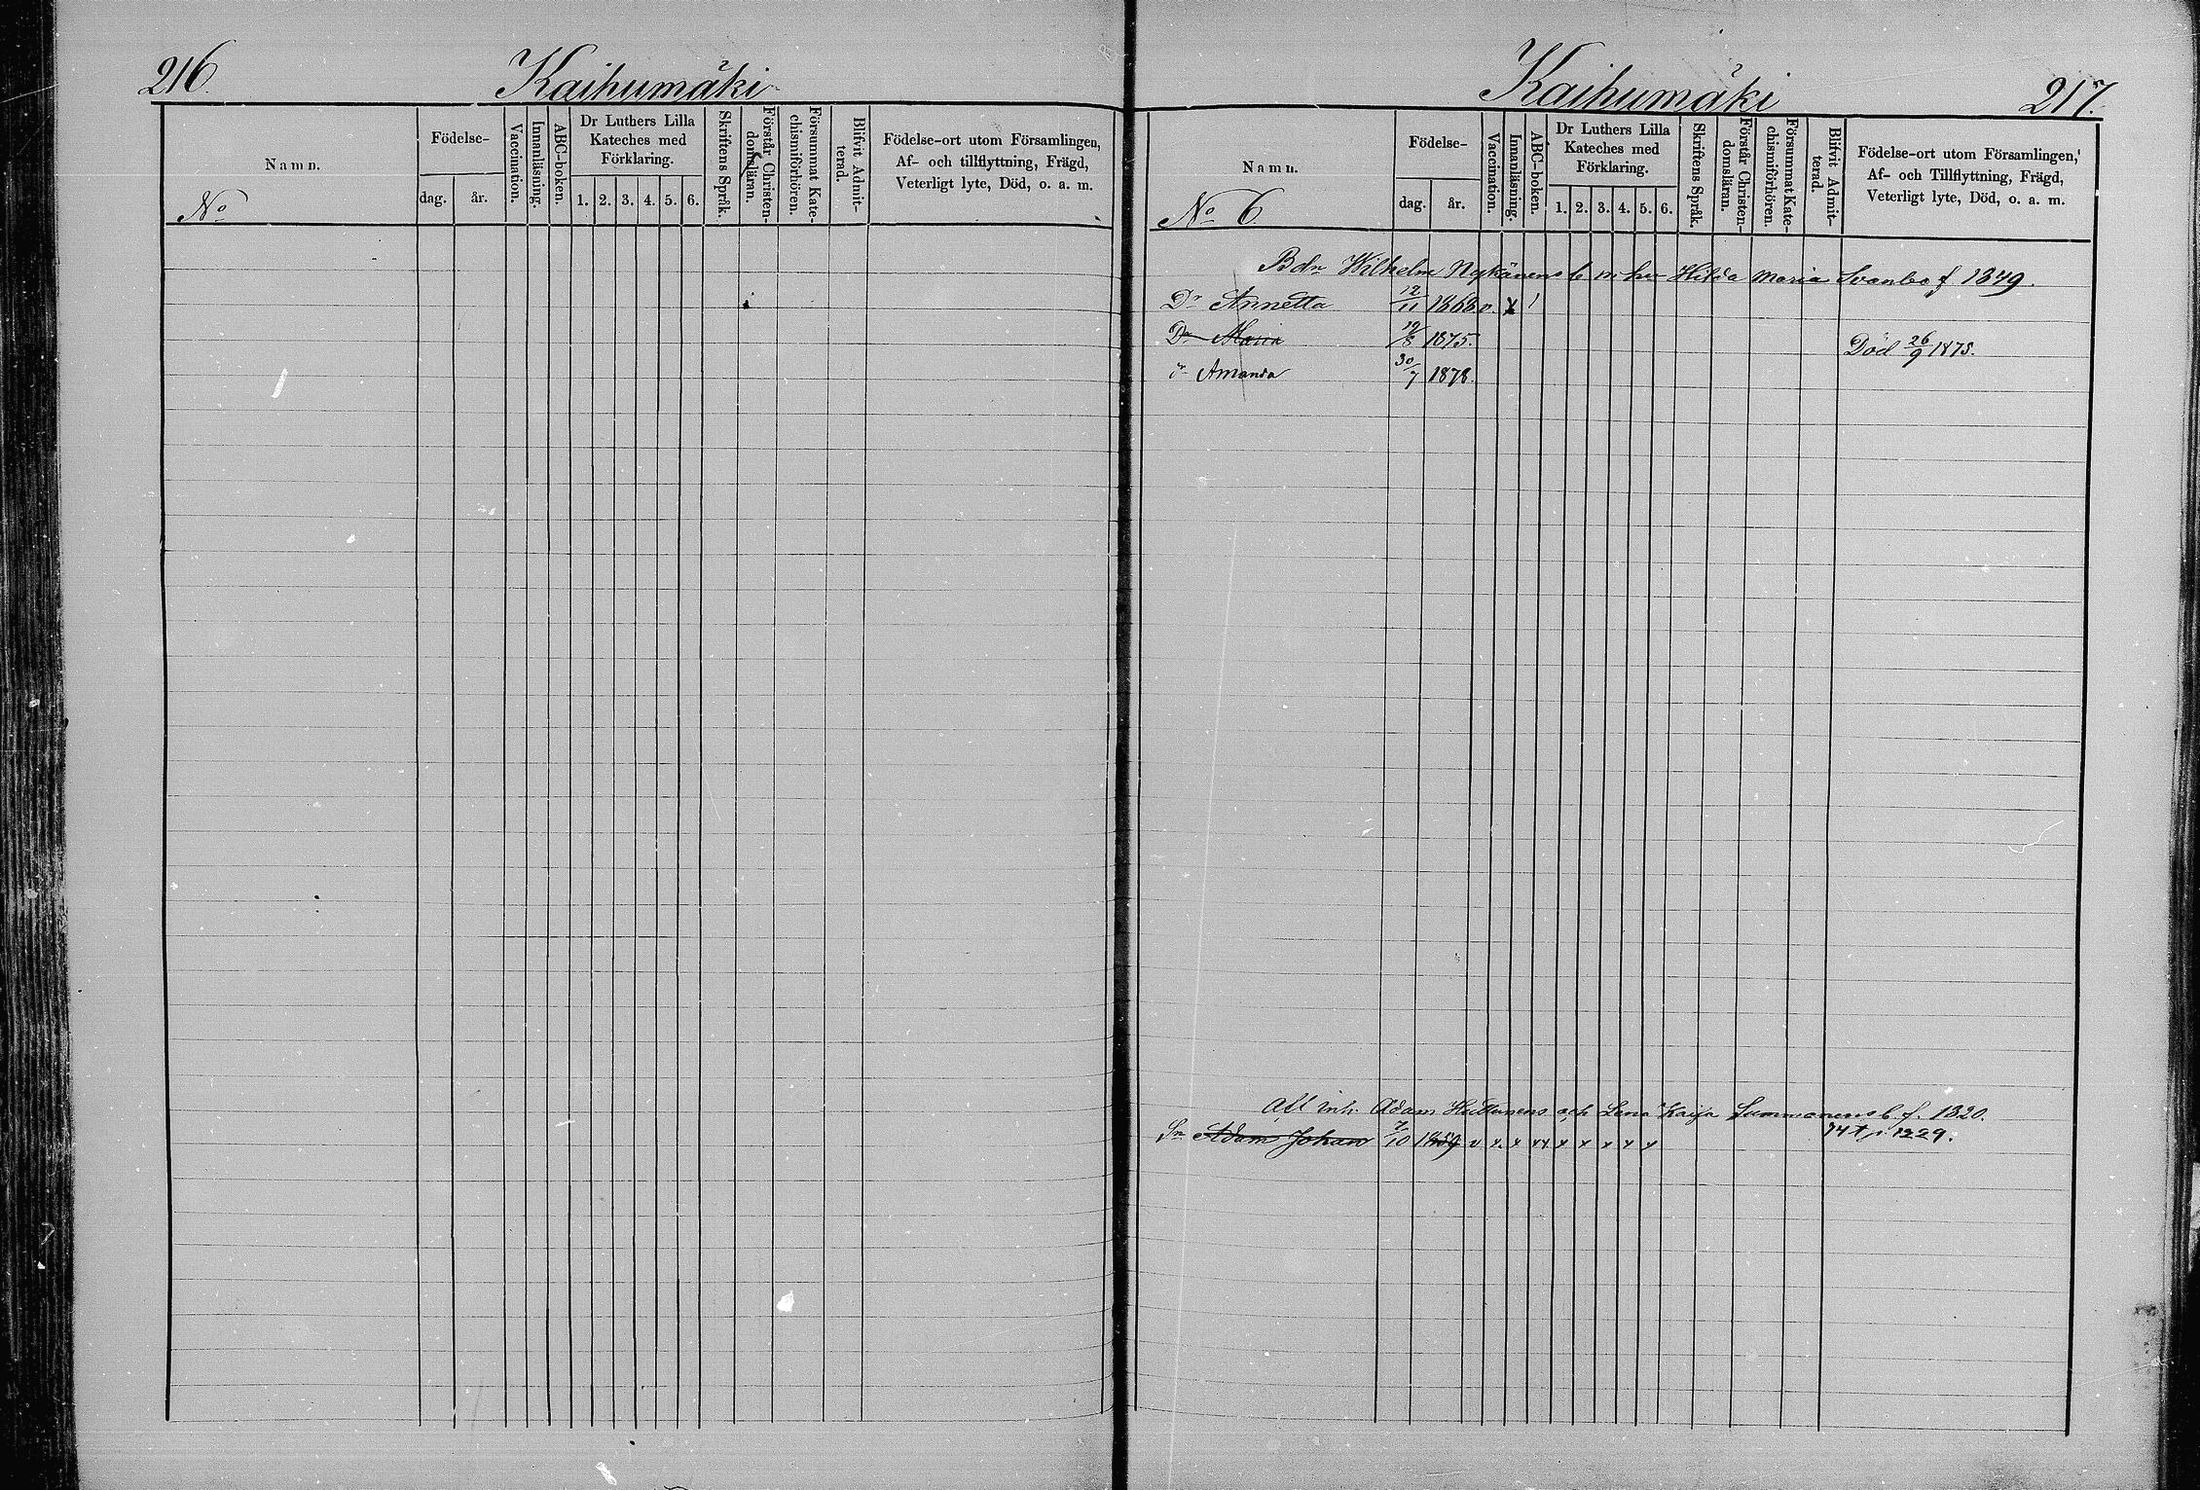 216.
Kaihumäki
Namn.
No
Födelse-
dag.
år.
Vaccination.
Innanläsning.
ABC-boken.
Dr Luthers Lilla
Kateches med
Förklaring.
1. 2. 3. 4. 5. 6.
Skriftens Språk.
Förstår Christen-
domsläran.
Försummat Kate-
chismiförhören.
Blifvit Admit-
terad.
Födelse-ort utom Församlingen,
Af- och tillflyttning, Frägd,
Veterligt lyte, Död, o. a. m.
Kaihumäki
217.
Namn.
No 6
Födelse-
dag.
år.
Vaccination.
Innanläsning.
ABC-boken.
Dr Luthers Lilla
Kateches med
Förklaring.
1. 2. 3. 4. 5. 6.
Skriftens Språk.
Förstår Christen-
domsläran.
Försummat Kate-
chismiförhören.
Blifvit Admit-
terad.
Födelse-ort utom Församlingen,
Af- och Tillflyttning, Frägd,
Veterligt lyte, Död, o. a. m.
Bdn Wilhelm Nykänens b. m hu Hilda Maria f 1849.
Dr Annetta 12/11 1868 v. x 1
Dr Maria 19/8 1875. Död 26/9 1875.
Dr Amanda 30/7 1878.
Afl inh. Adam Huttunens och Lena Kaisa Summanens b. f. 1820.
Sn Adam Johan 7/10 1859 v x x xx x x x x x 74 t. p. 1229.